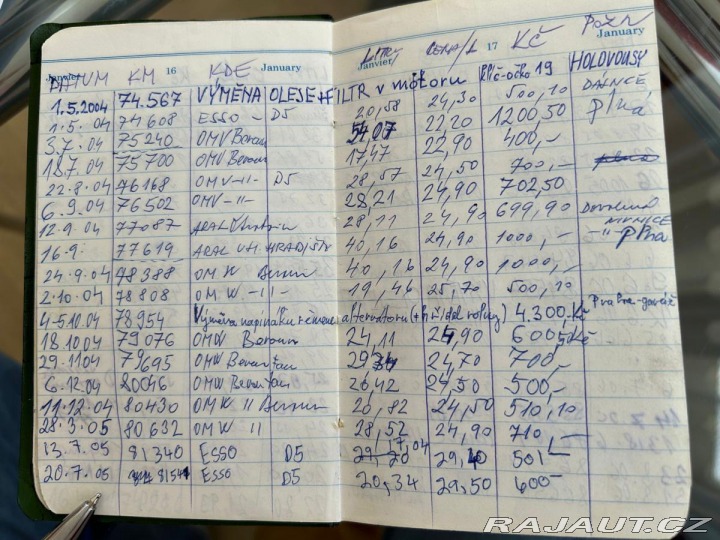 Janvier 16 January Janvier 17 January
DATUM KM KDE LITRY CENA/L Kč POZN
1.5.2004 74.567 VÝMĚNA OLEJE + FILTR v motoru Klíč-očko 19 HOLOVOUSY
1.5.04 74608 ESSO - D5 20,58 24,30 500,10 DÁLNICE
3.7.04 75240 OMV Beroun 54,07 22,20 1200,50 plná
18.7.04 75700 OMV Beroun 17,47 22,90 400,-
22.8.04 76168 OMV -11- D5 28,57 24,50 700,-
6.9.04 76502 OMV -11- 28,21 24,90 702,50
12.9.04 77087 ARAL 28,11 24,90 699,90
16.9. 77619 ARAL UH. HRADIŠTĚ 40,16 24,90 1000,- -11- plná
24.9.04 78388 OMW Beroun 40,16 24,90 1000,-
2.10.04 78808 OMW -11- 19,46 25,70 500,10
4-5.10.04 78954 Výměna napínáku řemene alternátoru 4.300,-Kč
18.10.04 79076 OMW Beroun 24,11 24,90 600
29.11.04 79695 OMW Beroun 24,70 700,-
6.12.04 80046 OMW Beroun 20,42 24,50 500,-
11.12.04 80430 OMW 11 Beroun 20,82 24,50 510,10
28.3.05 80632 OMW 11 28,52 24,90 710,-
13.7.05 81340 ESSO D5 17,04 501,-
20.7.05 81541 ESSO D5 20,34 29,50 600,-
RAJAUT.CZ